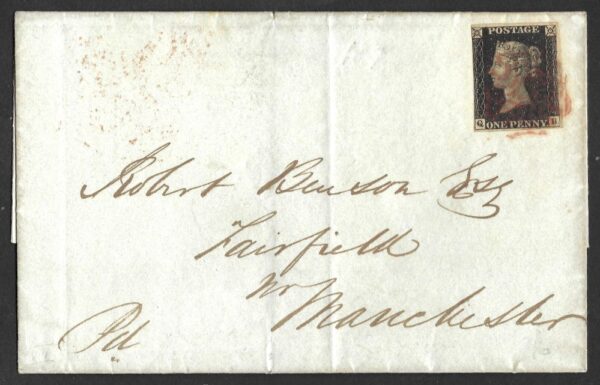 POSTAGE
ONE PENNY
Robert Benson Esq
Fairfield
nr
Manchester
Pd